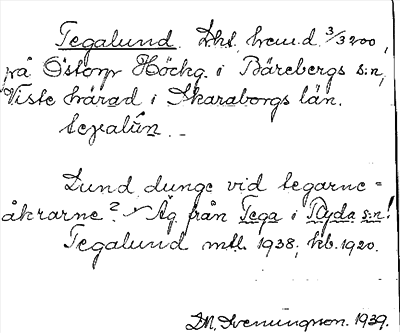 Tegalund. Lht, hemd. 3/3200,
på Östorp Höckg. i Bärebergs sn,
Viste härad i Skaraborgs län.
teɣalūn. –
Lund, dunge vid tegarne =
åkrarne? Äg. från Tega i Ryda sn!
Tegalund mtl. 1938; kb. 1920.
D.N. Svenningson. 1939.